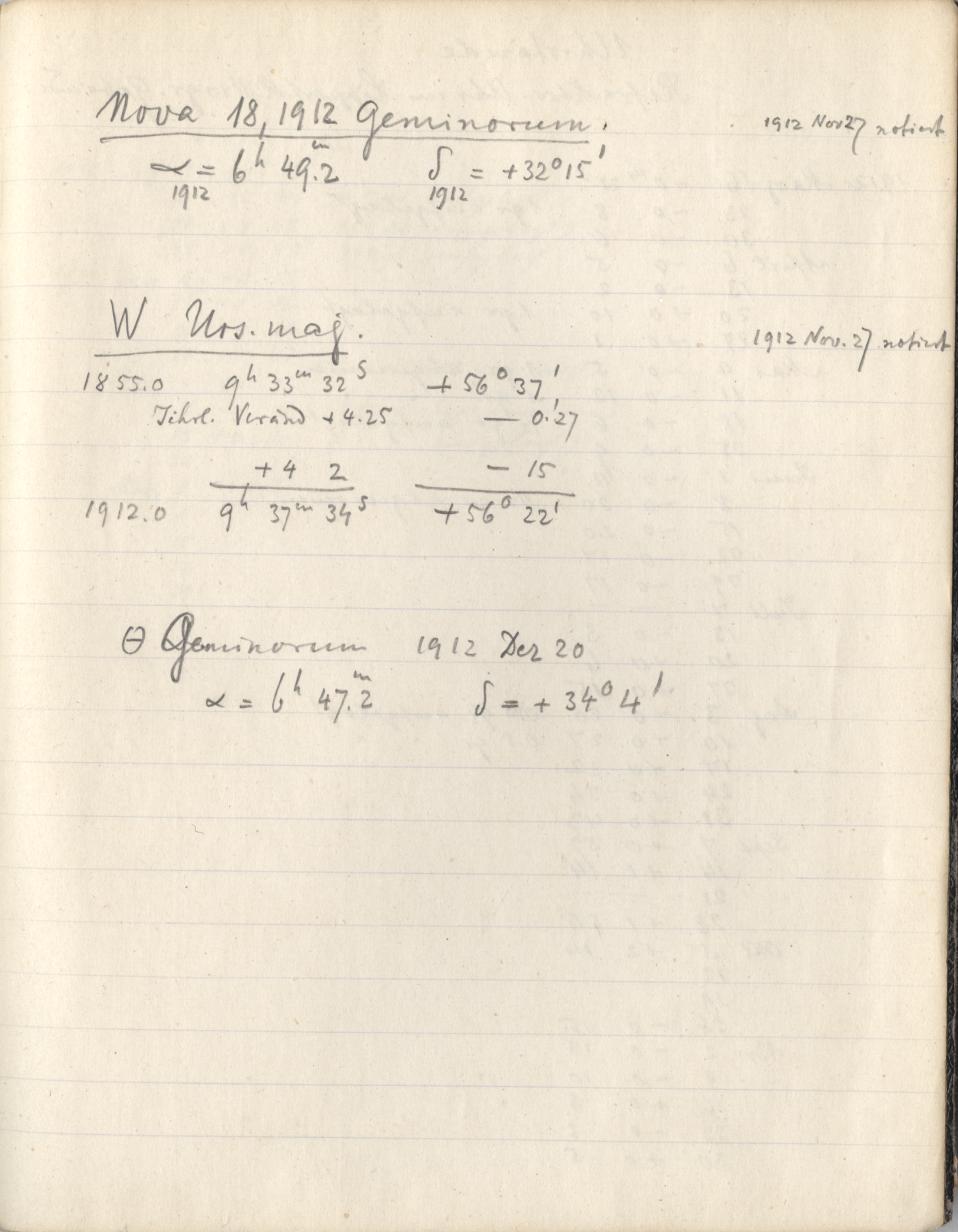 Nova 18, 1912 Geminorum. 1912 Nov 27 notiert
α = 6h 49.m2 δ = +32° 15'
1912 1912
W Urs. maj. 1912 Nov. 27 notiert
1855.0 9h 33m 32s +56° 37'
Jährl. Veränd +4.25 — 0.'27
+4 2 - 15
1912.0 9h 37m 34s +56° 22'
θ Geminorum 1912 Dez 20
α = 6h 47.m2 δ = + 34° 4'